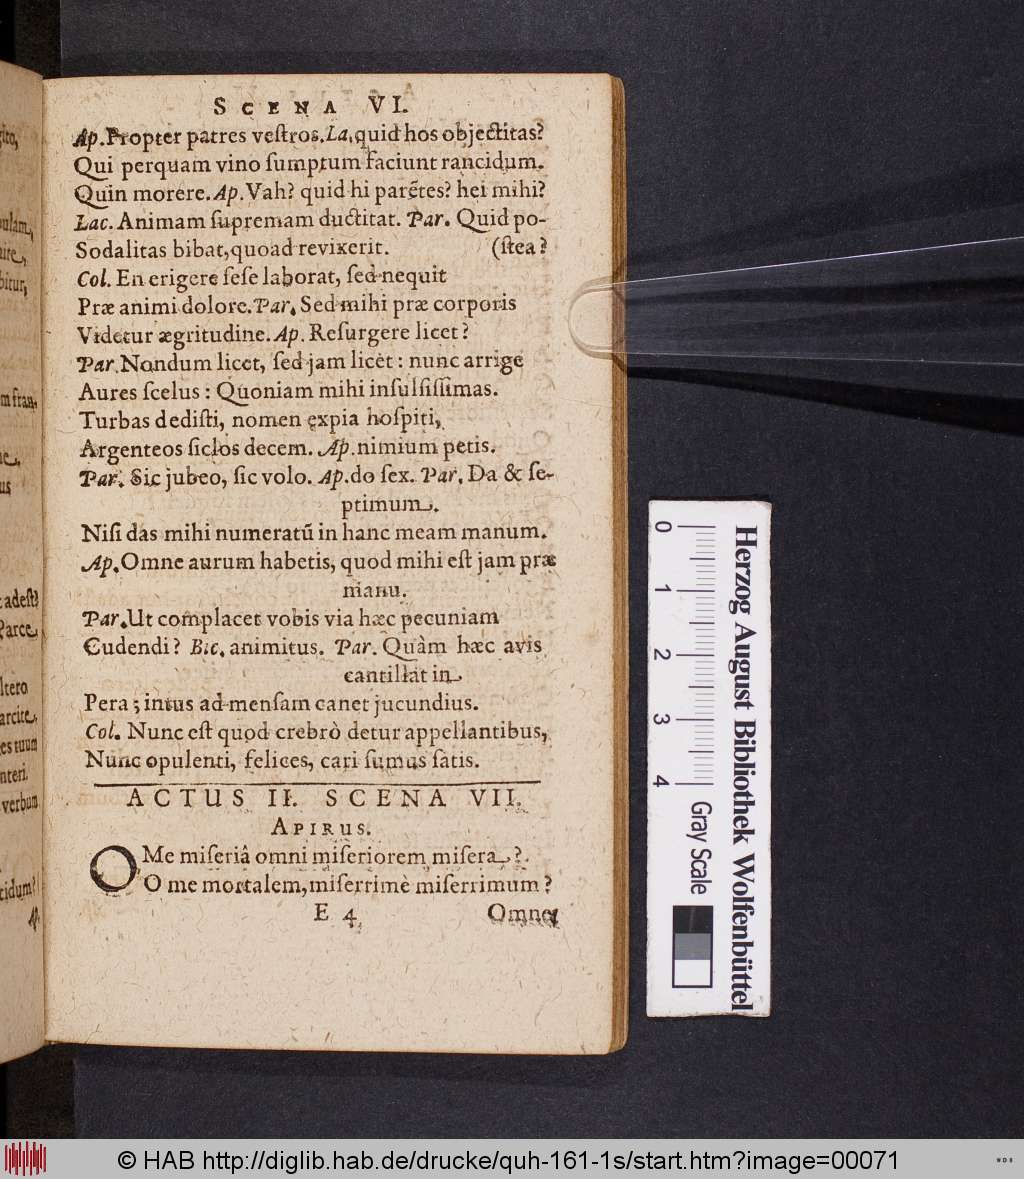 SCENA VI.
Ap. Propter patres veſtros. La, quid hos objectitas?
Qui perquam vino ſumptum faciunt rancidum.
Quin morere. Ap. Vah? quid hi parētes? hei mihi?
Lac. Animam ſupremam ductitat. Par. Quid po-
Sodalitas bibat, quoad revixerit. (ſtea?
Col. En erigere ſeſe laborat, ſed nequit
Præ animi dolore. Par. Sed mihi præ corporis
Videtur ægritudine. Ap. Reſurgere licet?
Par. Nondum licet, ſed jam licèt: nunc arrige
Aures ſcelus: Quoniam mihi inſulſiſſimas.
Turbas dediſti, nomen expia hoſpiti,
Argenteos ſiclos decem. Ap. nimium petis.
Par. Sic jubeo, ſic volo. Ap. do ſex. Par. Da & ſe-
ptimum.
Niſi das mihi numeratū in hanc meam manum.
Ap. Omne aurum habetis, quod mihi eſt jam præ
manu.
Par. Ut complacet vobis via hæc pecuniam
Cudendi? Bic. animitus. Par. Quàm hæc avis
cantillat in
Pera; intus ad menſam canet jucundius.
Col. Nunc eſt quod crebrò detur appellantibus,
Nunc opulenti, felices, cari ſumus ſatis.
ACTUS II. SCENA VII.
APIRUS.
O Me miſeriâ omni miſeriorem miſera?
O me mortalem, miſerrimè miſerrimum?
E 4 Omne
adeſt?
Parce
ltero
arcite
es tuum
nteri.
verbum
cidum?
Ap.
0 1 2 3 4
Gray Scale
Herzog August Bibliothek Wolfenbüttel
© HAB http://diglib.hab.de/drucke/quh-161-1s/start.htm?image=00071